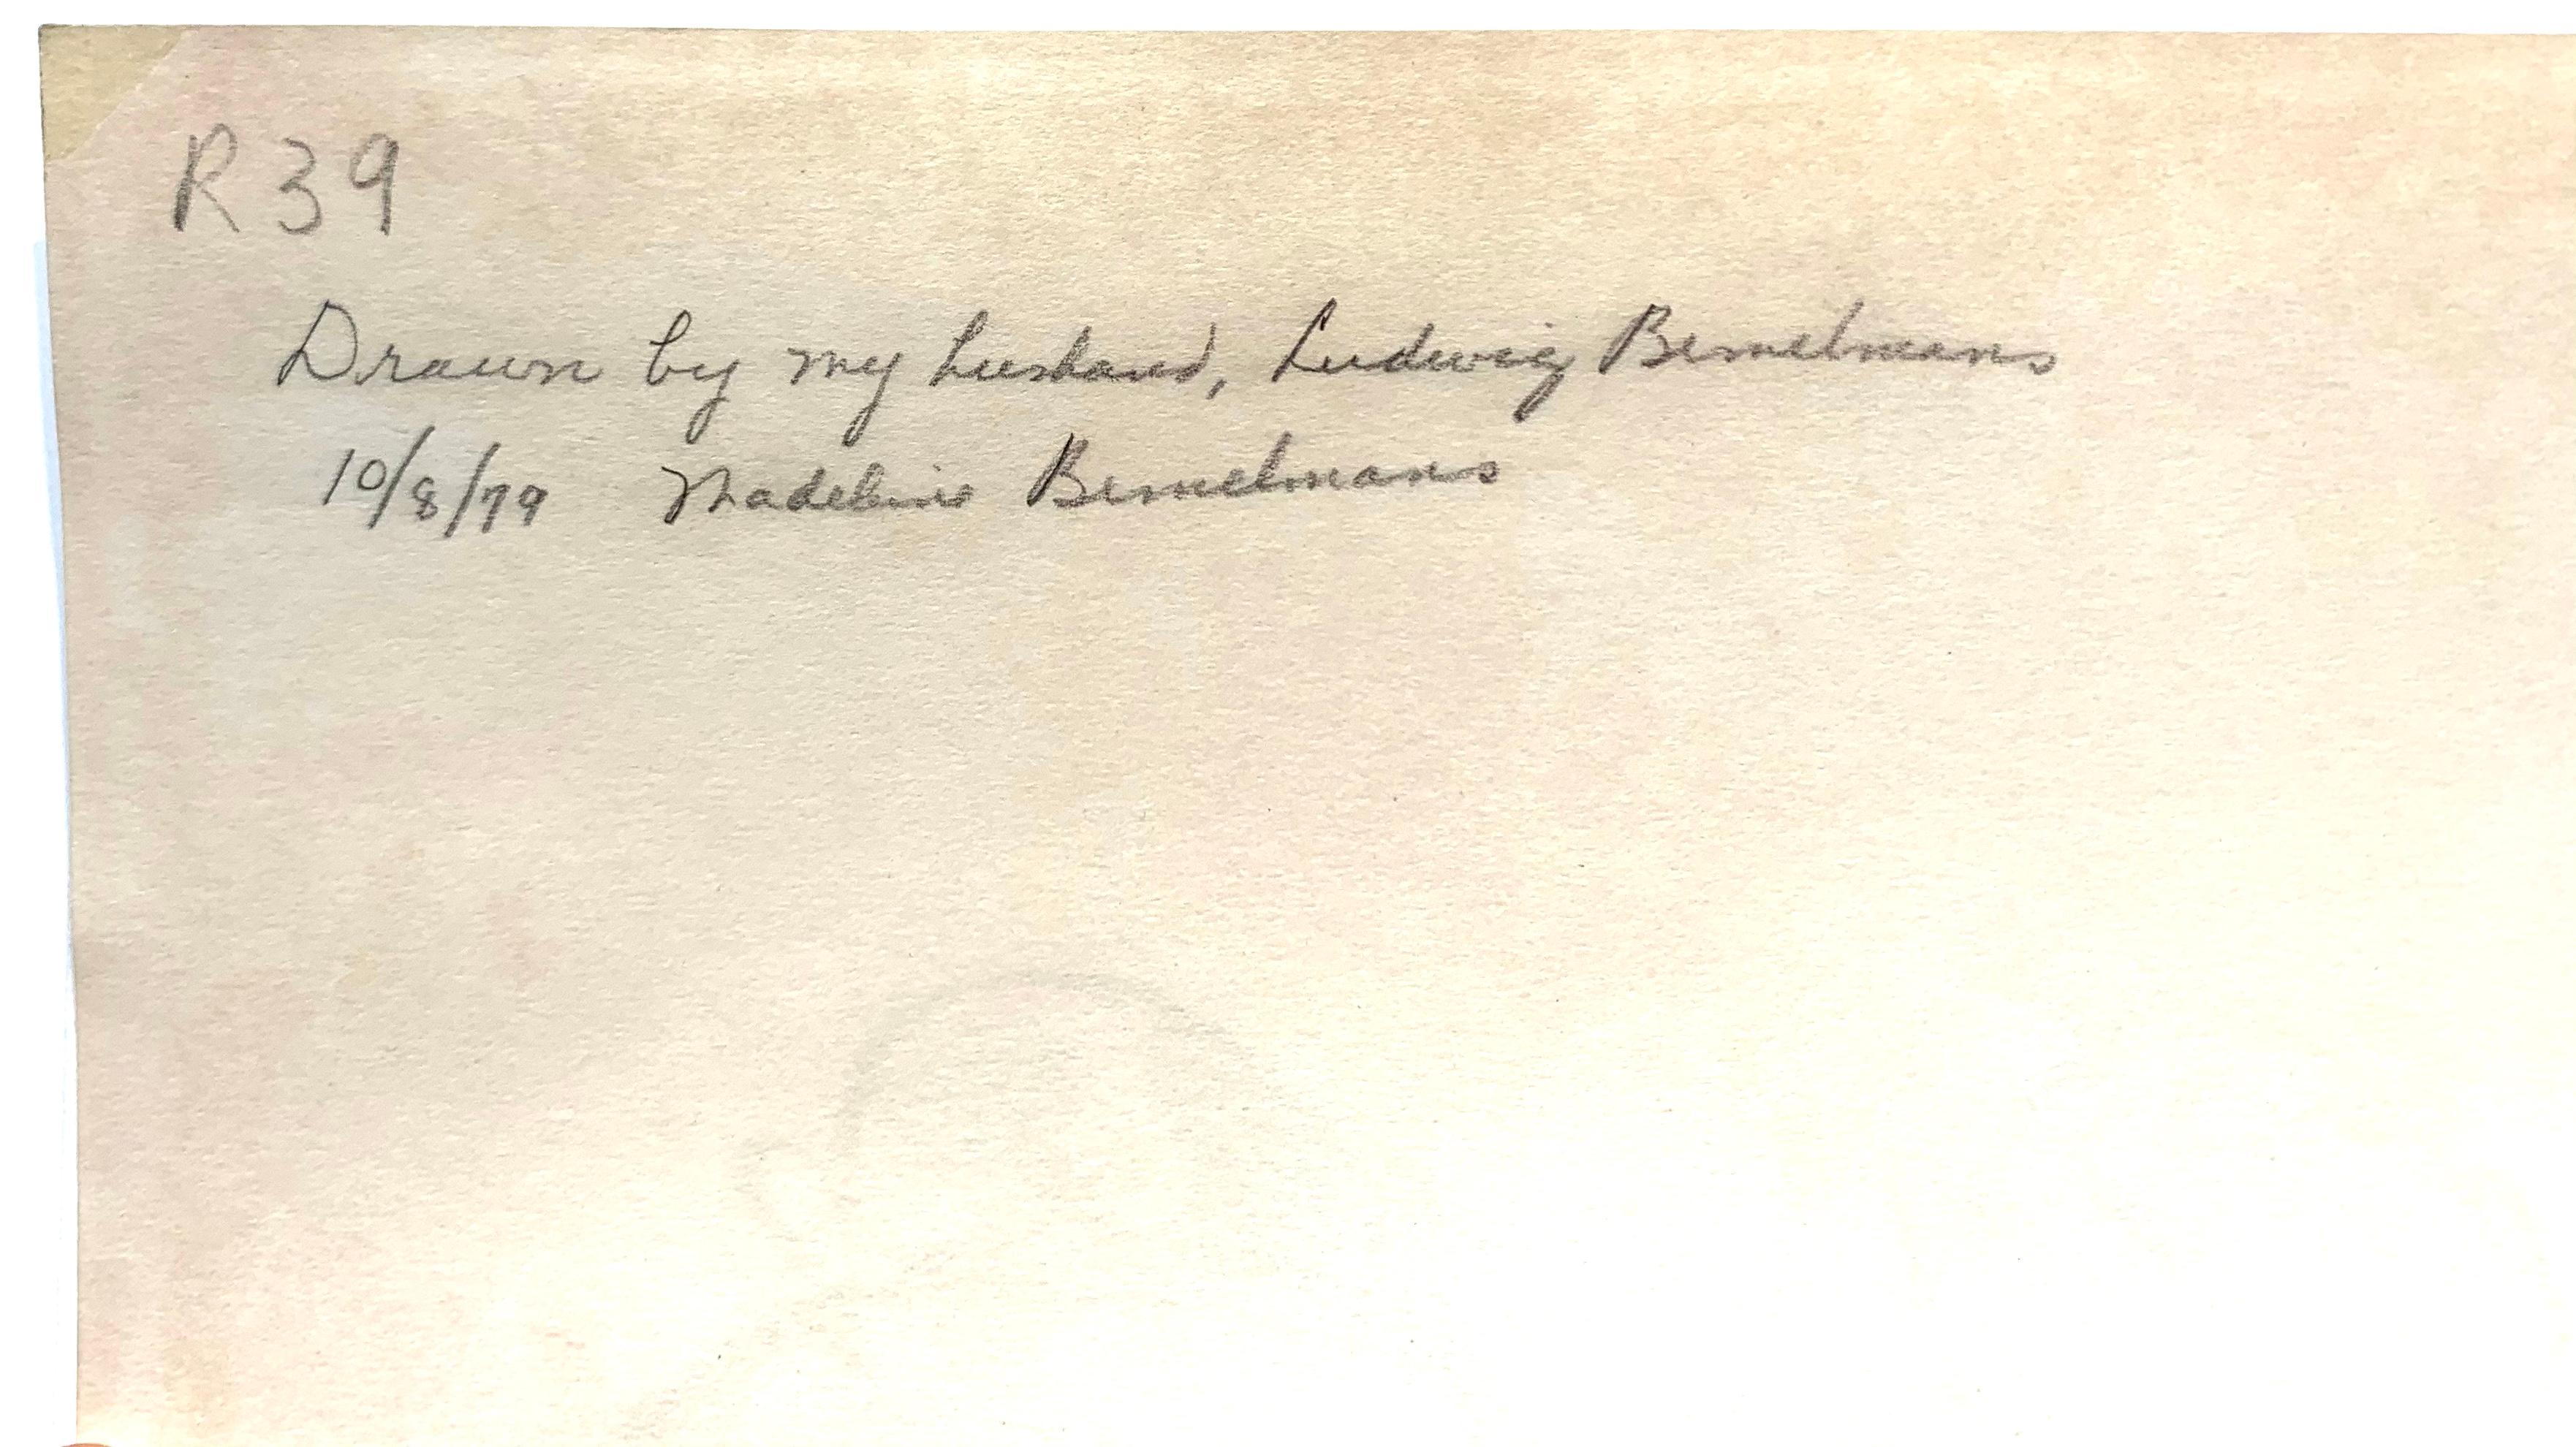 R39
Drawn by my husband, Ludwig Bemelmans
10/8/79 Madeleine Bemelmans